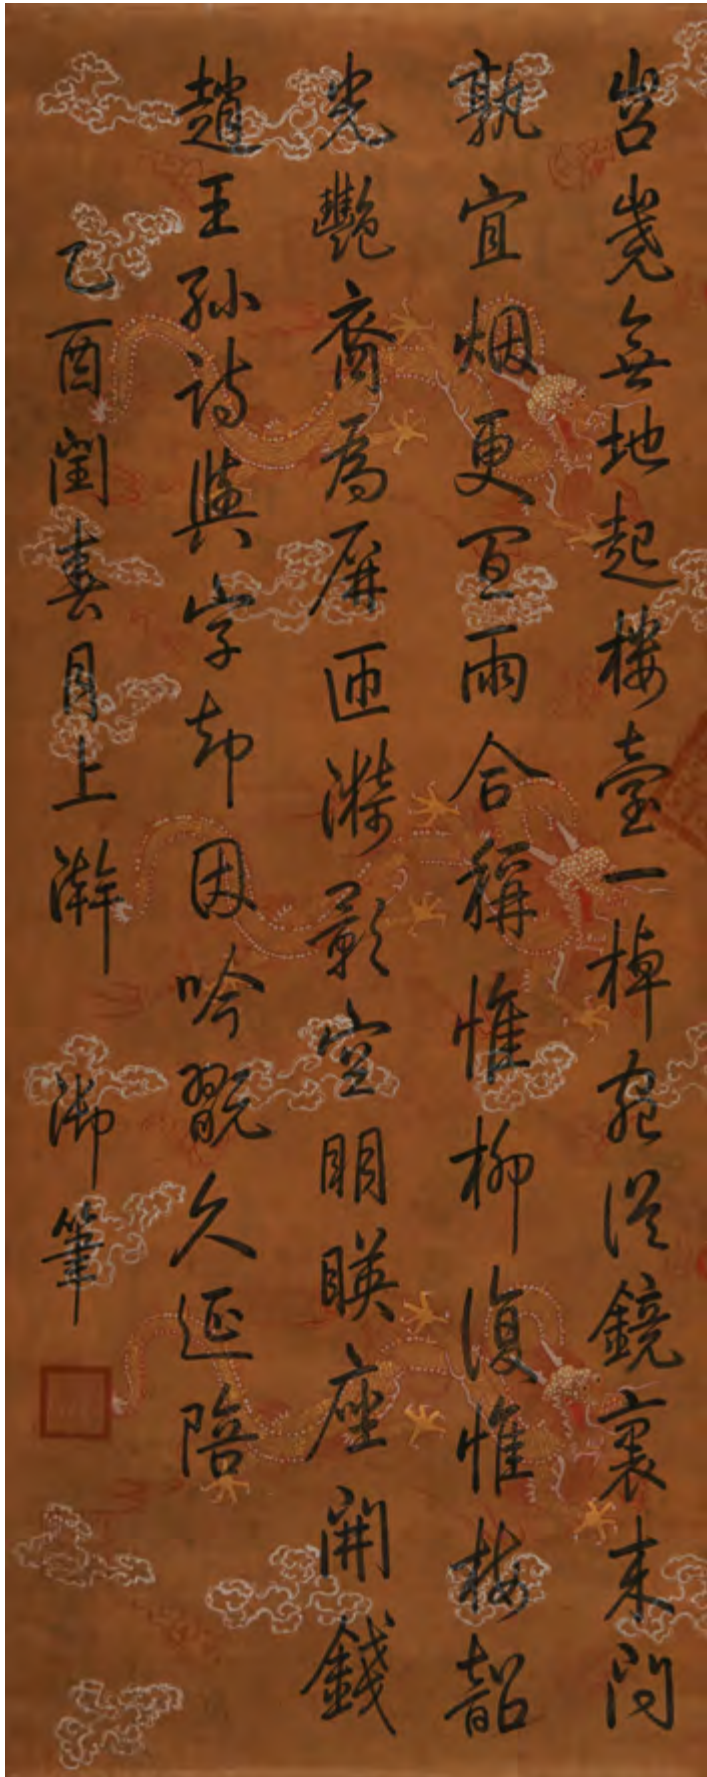 岧嶤無地起樓臺一棹宛從鏡裏来問
孰宜烟更宜雨合稱惟柳復惟梅韶
光艷裔為屏匝漪影空明暎座開錢
趙王孫詩與字却因吟翫久延陪
乙酉閏春月上澣 御筆